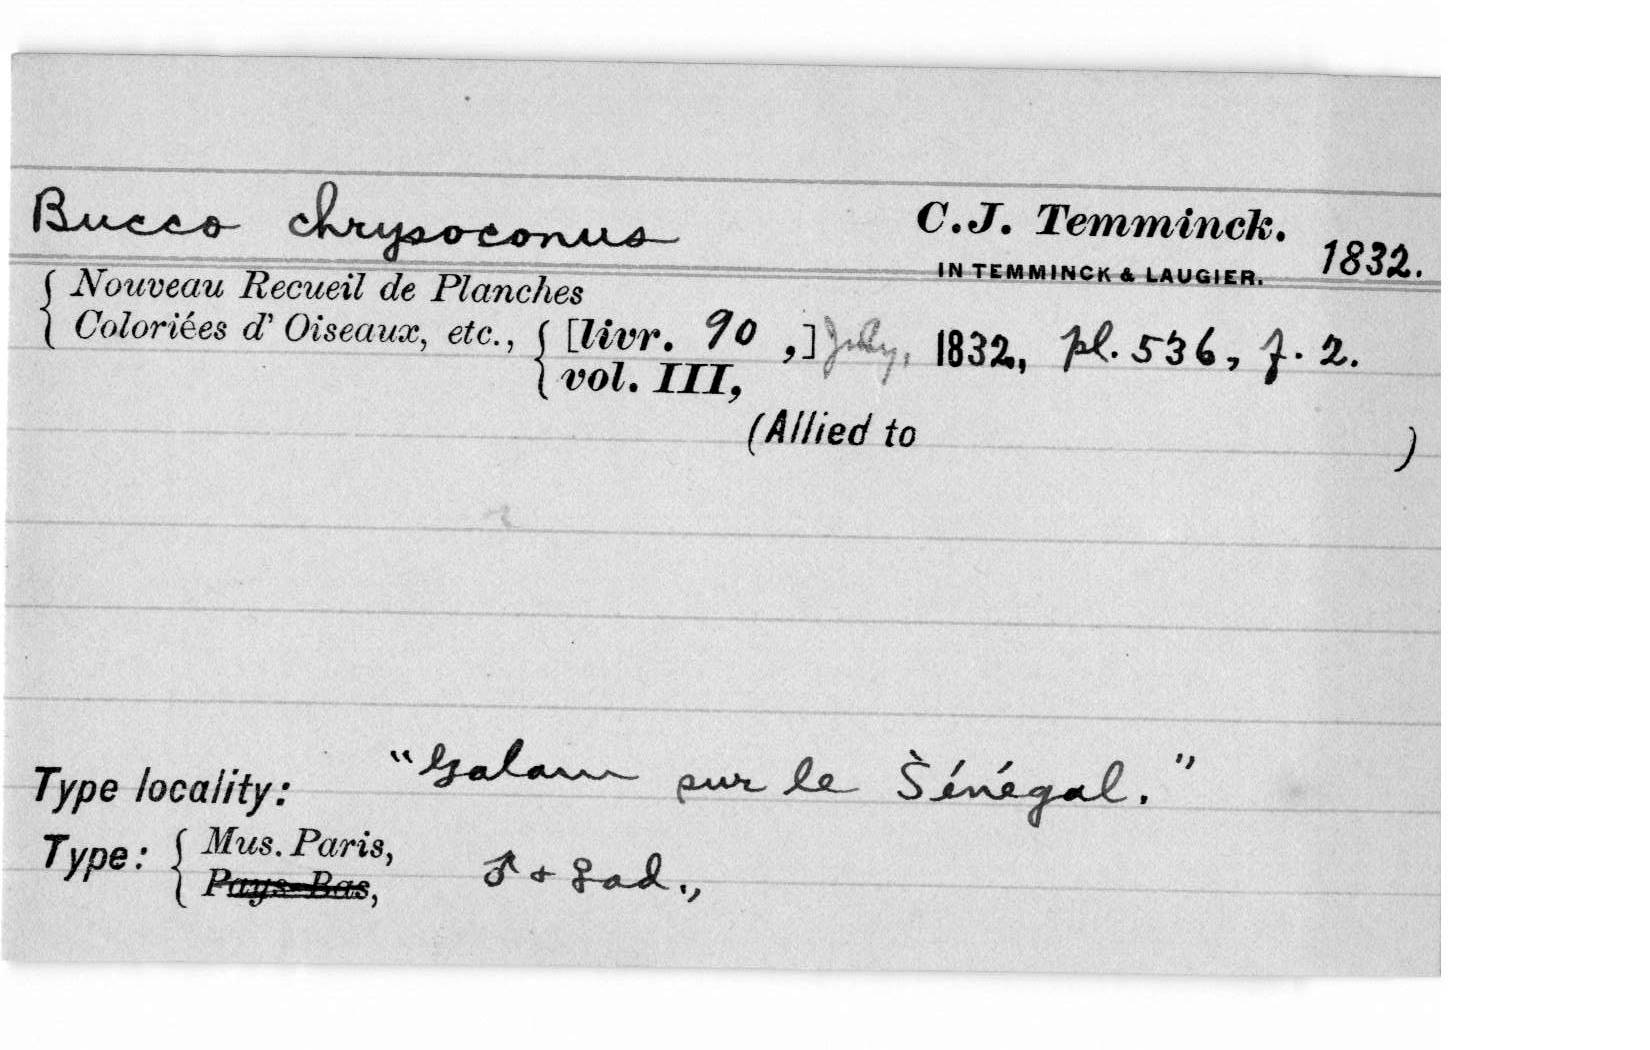 Bucco chrysoconus C.J. Temminck.
IN TEMMINCK & LAUGIER. 1832.
{ Nouveau Recueil de Planches
Coloriées d' Oiseaux, etc., { [livr. 90 ,] July, 1832, pl. 536, f. 2.
vol. III,
(Allied to )
Type locality: "Galam sur le Sénégal."
Type: { Mus. Paris, ♂ + ♀ ad.,
Pays-Bas,